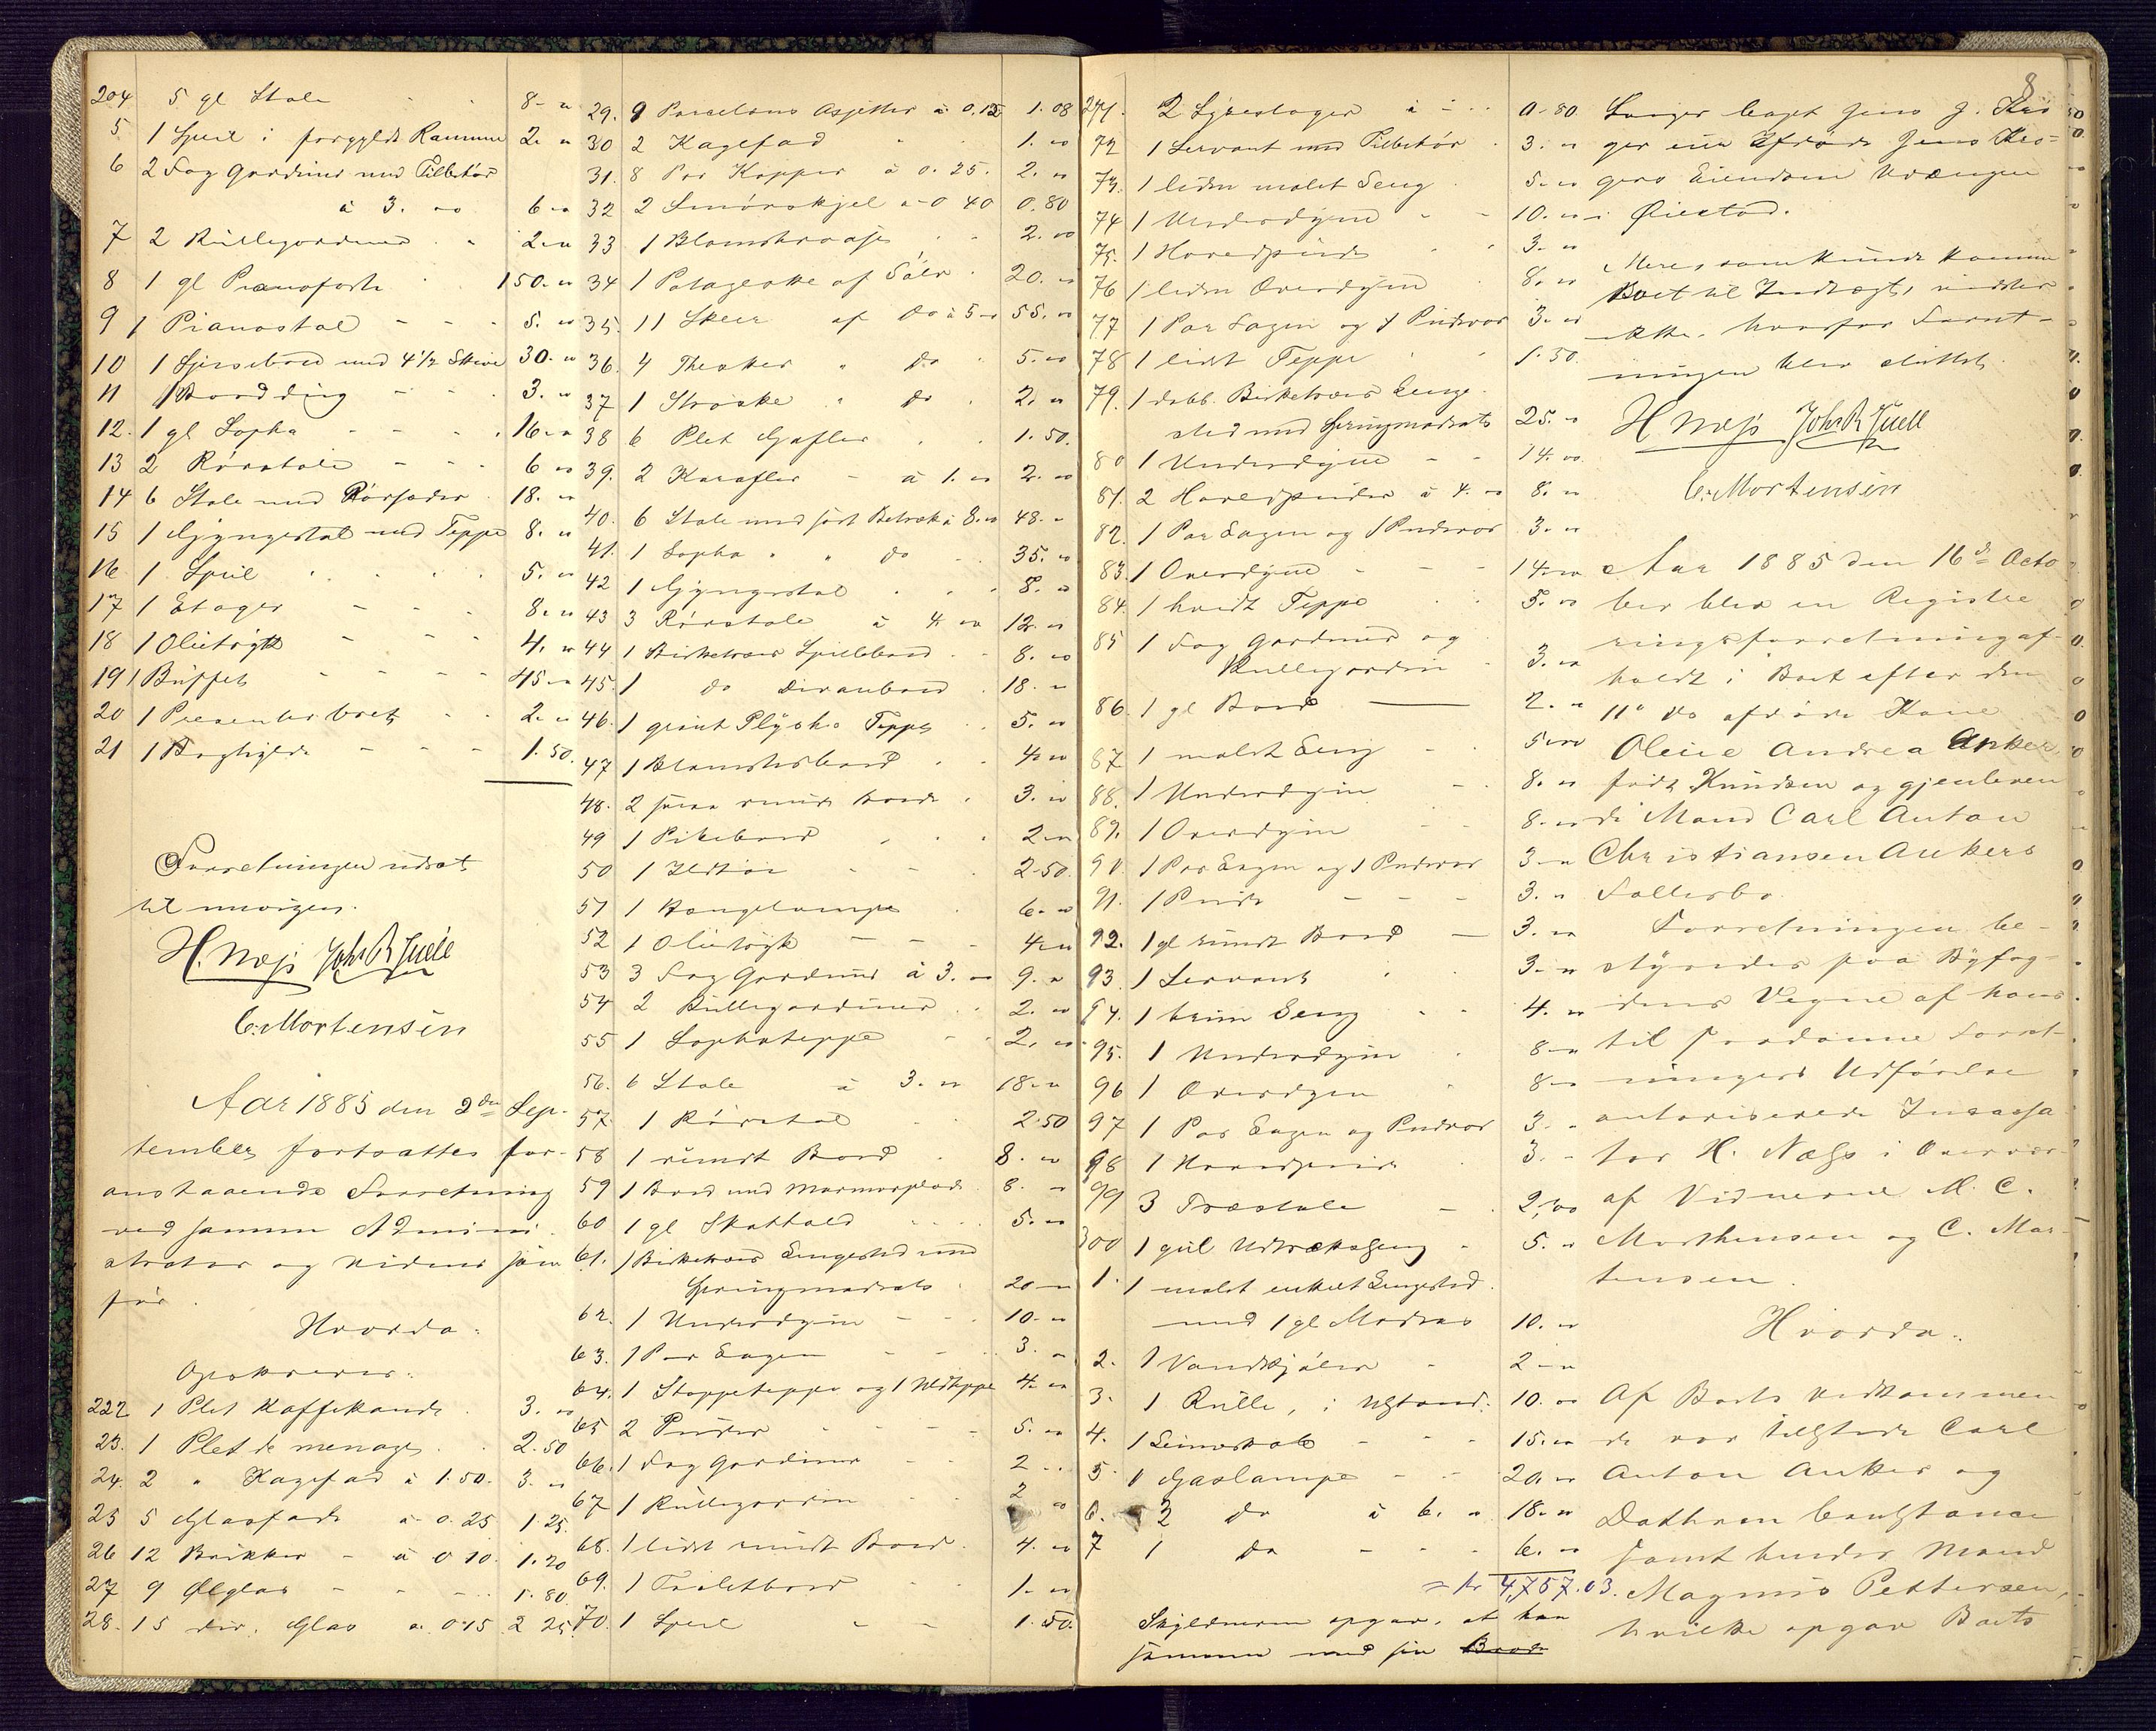 204 5 gl Stole 8-"
5 1 Speil i forgyldt Ramme 2. "
6 2 Fag Gardiner med Tilbehør
à 3. " 6-"
7 2 Rullegardiner 2-"
8 1 gl Pianoforte 150. "
9 1 Pianostol 5. "
10 1 Spisebord med 4½ Skive 30. "
11 1 Bord 3. "
12. 1 gl Sopha 16-"
13 2 Rørstole 6 "
14 6 Stole med 18. "
15 1 Gyngestol med Teppe 8. "
16 1 Speil 5. "
17 1 Etager 8. "
18 1 Olietryk 4. "
19 1 Büffet 45-"
20 1 Presenterbret 2. "
21 1 Boghylde 1.50.
Forretningen udsat
til imorgen.
H. Næss Johs R Juell
C. Mortensen
Aar 1885 den 2den Sep-
tember fortsattes for-
anstaaende Forretning
ved samme Admini-
strator og Vidner som
før.
Hvorda:
Opskreves:
222 1 Plet Kaffekande 3. "
23. 1 Plet de menage 2.50
24. 2 " Kagefad à 1.50. 3. "
25 5 Glasfade à 0.25 1.25.
26 12 Brikker - à 0 10. 1.20
27 9 Ølglas 1.80
28. 15 div. Glas à 0.15 2 25.
29. 9 Porcelains Asjetter à 0.12 1.08
30 2 Kagefad 1. "
31. 8 Par Kopper à 0.25. 2. "
32 2 à 0 40 0.80
33 1 Blomstvase 2. "
34 1 Potageske af Sølv 20. "
35. 11 Skeer af do à 5-" 55. "
36. 4 Theskeer " do 5. "
37 1 Strøske " do 2. "
38 6 Plet Gafler 1.50.
39. 2 Karafler - à 1. " 2. "
40. 6 Stole med sort Betræk à 8. " 48. -
41. 1 Sopha " " do 35. "
42 1 Gyngestol 8. "
43 3 Rørstole à 4 " 12. "
44 1 Birketræes Spillebord 8. "
45. 1 do Divanbord 18. "
46. 1 grönt Plysk Teppe 5. "
47 1 Blomsterbord 4. "
48. 2 smaa runde Borde 3. "
49 1 Pibebord 2-"
50 1 Ildtøi 2-50.
51 1 Hængelampe 6. "
52 1 Olietryk 4-"
53 3 Fag Gardiner à 3. " 9. "
54 2 Rullegardiner 2. "
55 1 Sophateppe 2. "
56. 6 Stole à 3. " 18-"
57. 1 Rørstol 2.50
58 1 rundt Bord 8. "
59 1 Bord med Marmorplade 8. "
60 1 gl Skathold 5. "
61. 1 Birketræes Sengested med
Springmadrats 20-"
62. 1 Underdyne 10. "
63. 1 Par Lagen 3. "
64. 1 Stoppeteppe og 1 Uldteppe 4. "
65 2 Puder 5. "
66. 1 Fag Gardiner 2 -
67 1 Rullegardin 2 "
68. 1 lidet rundt Bord 4. "
69. 1 Toiletbord 1. "
70. 1 Speil 1.50.
271. 2 Lysestager à 0-80
72 1 Servant med Tilbehör 3. "
73. 1 liden malet Seng 5. "
74 1 Underdyne 10. "
75. 1 Hovedpude 3. "
76 1 liden Overdyne 8. "
77 1 Par Lagen og 1 Pudevar 3. "
78 1 lidet Teppe 1.50.
79. 1 dobb. Birketræes Senge-
sted med Springmadrats 25. "
80 1 Underdyne 14. "
81. 2 Hovedpuder à 4. " 8. "
82. 1 Par Lagen og 1 Pudevar 3. "
83. 1 Overdyne 14. "
84. 1 hvidt Teppe 5. "
85 1 Fag Gardiner og
Rullegardin 3. "
86. 1 gl Bord 2. "
87 1 malet Seng 5. "
88. 1 Underdyne 8. "
89. 1 Overdyne 8. "
90. 1 Par Lagen og 1 Pudevar 3-"
91. 1 Pude 3. "
92. 1 gl rundt Bord 3. "
93. 1 Servant 3. "
94. 1 brun Seng 4. "
95. 1 Underdyne 8-"
96 1 Overdyne 8-"
97 1 Par Lagen og Pudevar 3. "
98 1 Hovedpude 3. -
99 3 Træstole 2,00
300 1 gul Udtræksseng 5. "
1. 1 malet enkelt Sengested
med 1 gl Madras 10. "
2. 1 2-"
3. 1 Rulle, i Ustand. 10. "
4. 1 15. "
5. 1 Gaslampe 20. "
6. 3 do à 6. " 18. "
7 1 do 6. "
= kr 4,757.03.
Skyldneren opgav, at han
sammen med sin Brode
8
Jens J. Krö
ger eier Afdøde Jens Krö-
gers Eiendom
i Øiestad.
Mere, som kunde komme
Boet til Indtægt, vidstes
ikke, hvorfor Forret-
ningen blev sluttet.
H Næss Johs R Juell
C. Mortensen
Aar 1885 den 16de Octo
ber blev en Registre
ringsforretning af-
holdt i Boet efter den
11te ds afdøde Kone
Oline Andrea Anker
født Knudsen og gjenleven
de Mand Carl Anton
Christiansen Ankers
Fællesbo.
Forretningen be-
styredes paa Byfog-
dens Vegne af hans
til saadanne Forret-
ningers Udførelse
autoriserede Incassa
tor H. Næss i Overvær
af Vidnerne M. C.
Morthensen og C. Mor-
tensen.
Hvorda:
Af Boets Vedkommen
de var tilstede Carl
Anton Anker og
Datteren Constance
samt hendes Mand
Magnus Pettersen,
hvilke opgav Boets